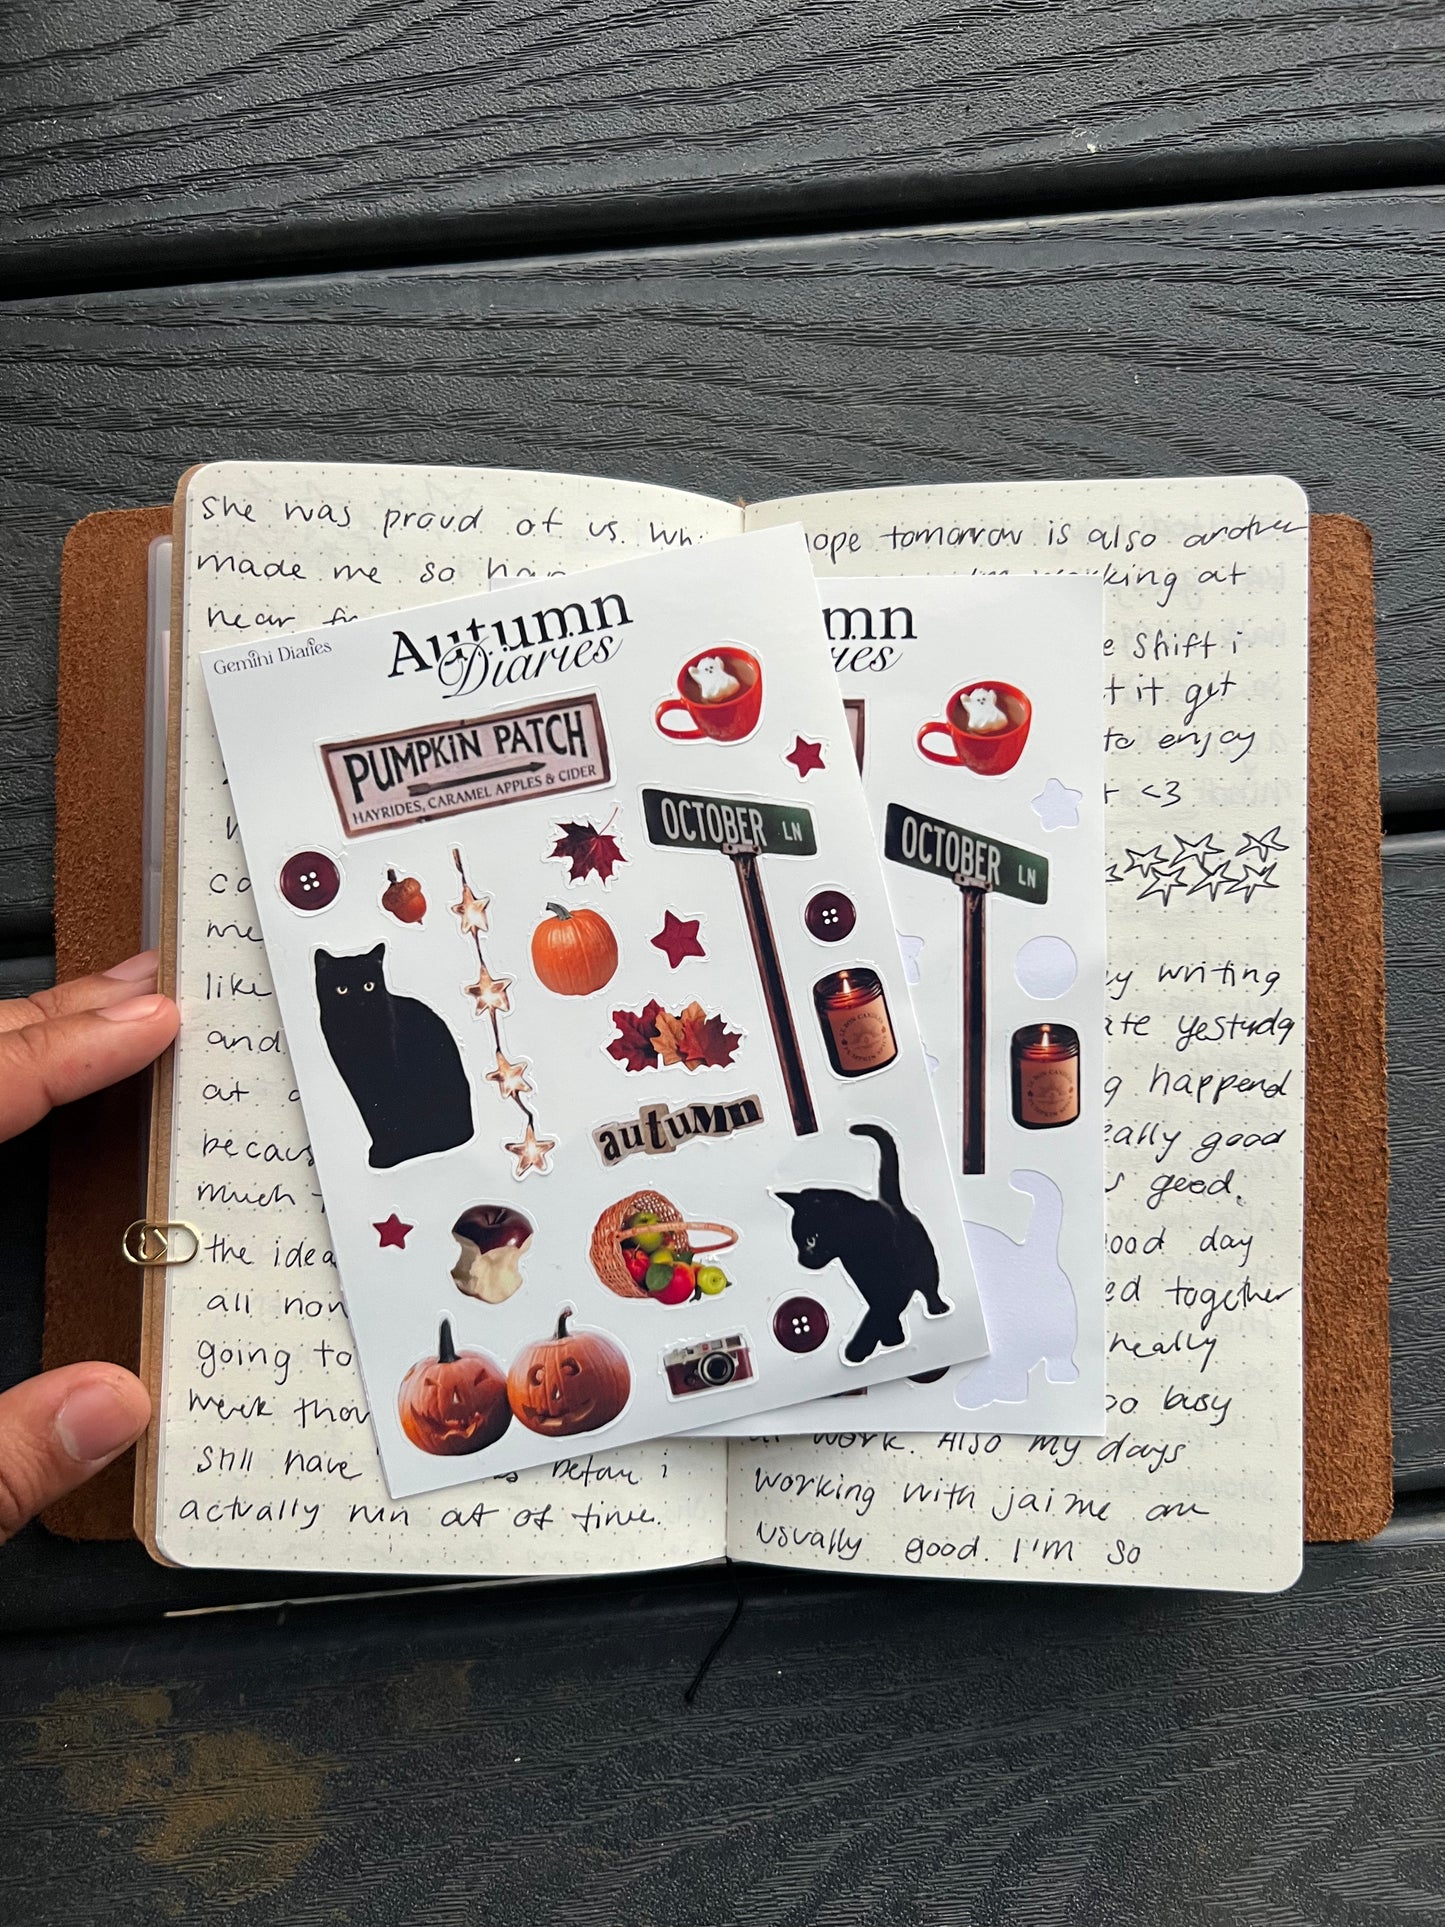 She was proud of us. Wh
made me so hap
near
Gemini Diaries
Autumn
Diaries
PUMPKIN PATCH
HAYRIDES, CARAMEL APPLES & CIDER
OCTOBER LN
autumn
co
me
like
and
at
becaus
much
the idea
all non
going to
week thou
still have before i
actually run out of time.
mn
ies
OCTOBER LN
LE BON CANDLE
PUMPKIN
hope tomorrow is also another
I'm working at
e shift i
t it get
to enjoy
<3
y writing
ate yesturday
g happend
eally good
s good.
ood day
ed together
really
oo busy
at work. Also my days
working with jaime are
usually good. I'm so